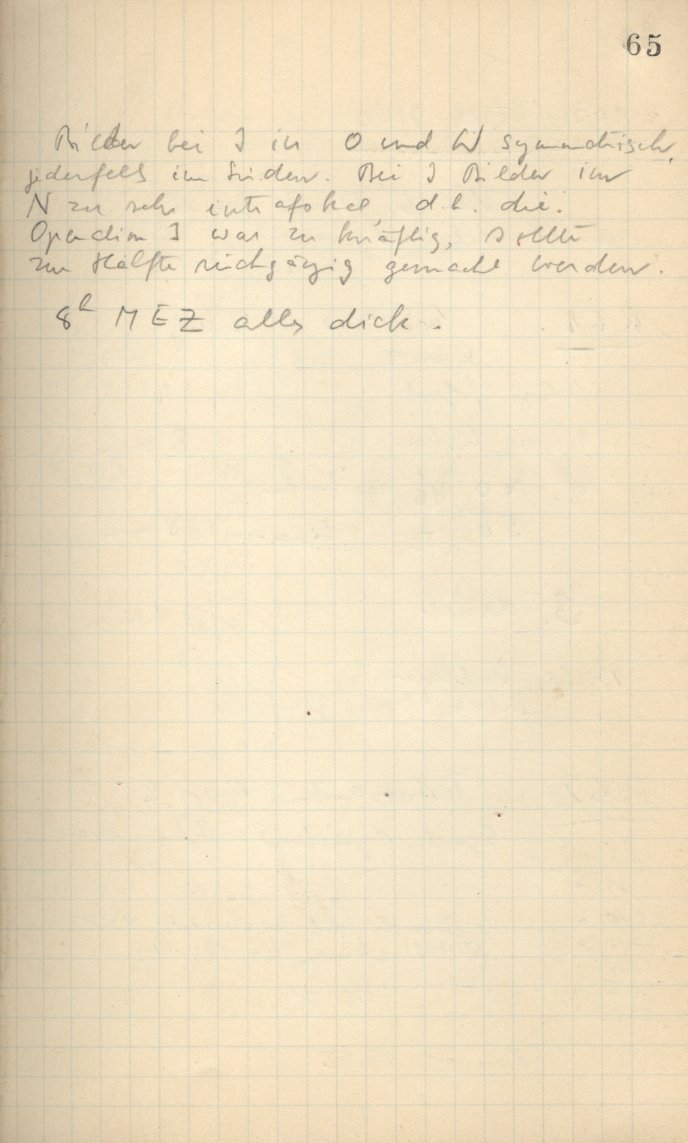 65
Bilder bei J in O und W symmetrisch,
jedenfalls im Süden. Bei J Bilder im
N zu sehr intrafokal, d.h. die.
Operation J war zu kräftig, sollte
zur Hälfte rückgängig gemacht werden.
8h MEZ alles dick.